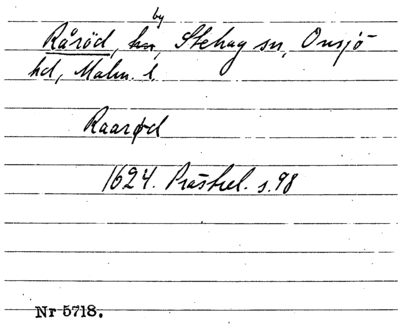 by
Råröd, hn, Stehag sn, Onsjö
hd, Malm. l.
Raarød
1624. Prästrel. s. 98
Nr 5718.